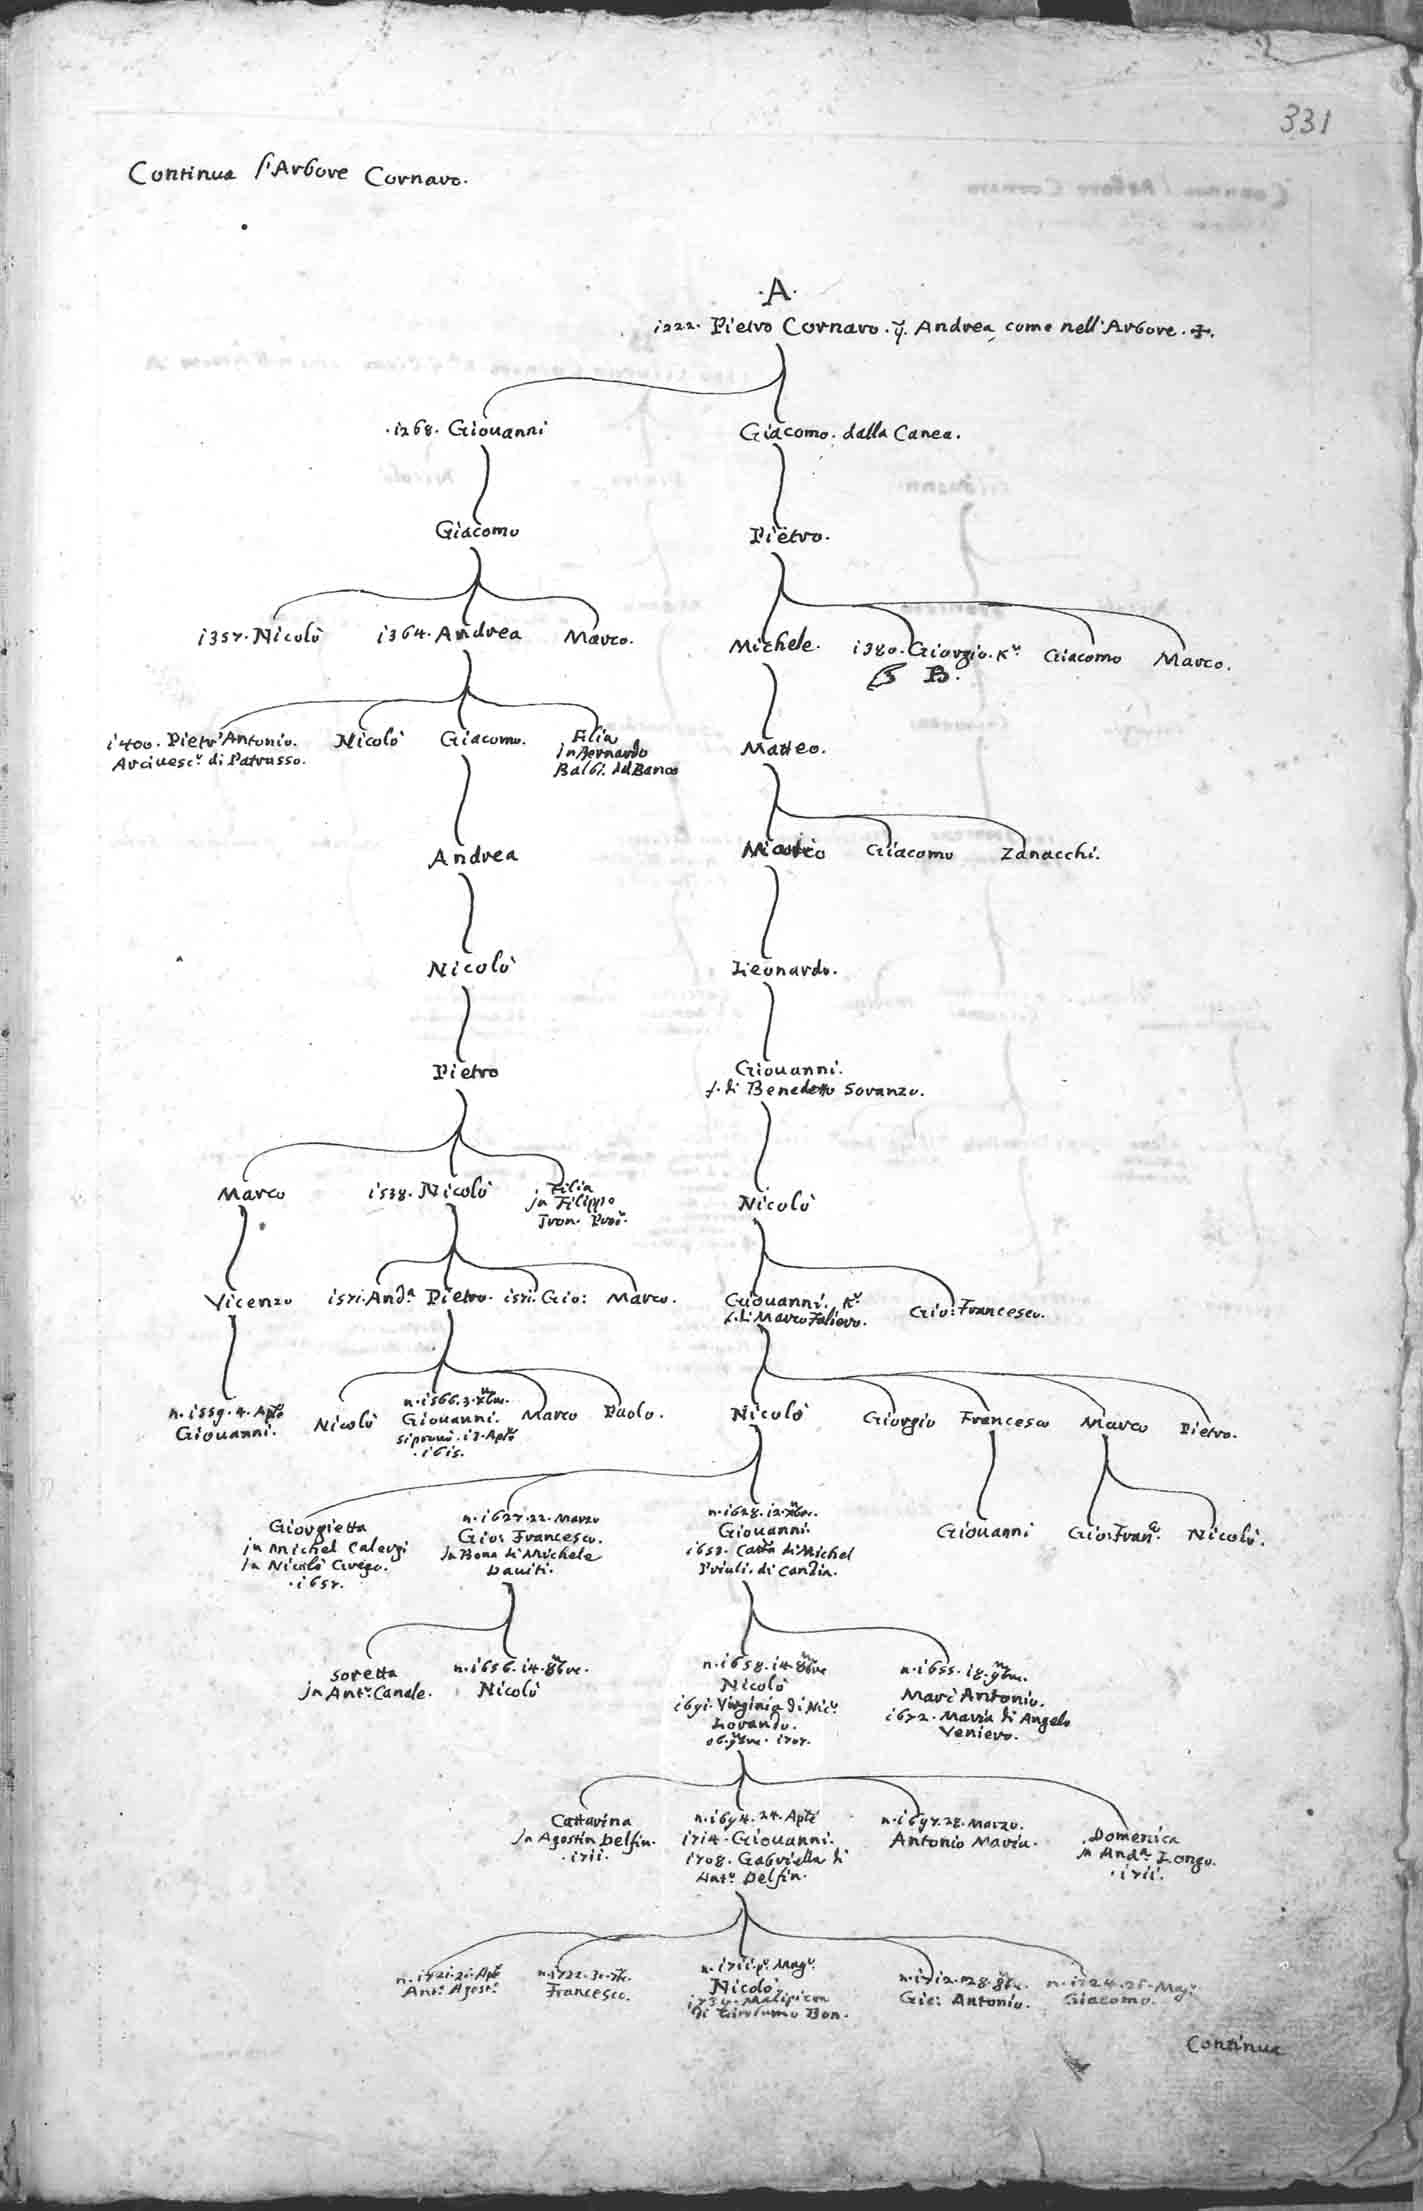 331
Continua l'Arbore Cornaro.
·A·
i222. Pietro Cornaro. q. Andrea, come nell'Arbore. ✠.
·i268. Giouanni
Giacomo. dalla Canea.
Giacomo
Pietro.
i357. Nicolò
i364. Andrea
Marco.
Michele.
i380. Giorgio. Kr.
Giacomo
Marco.
B.
i400. Pietr'Antonio.
Arciuesco. di Patrasso.
Nicolò
Giacomo.
Filia
in Bernardo
Balbi. dal Banco
Matteo.
Andrea
Giacomo
Zanacchi.
Nicolò
Leonardo.
Pietro
Giouanni.
f. di Benedetto Soranzo.
Marco
i538. Nicolò
Filia
in Filippo
Nicolò
Vicenzo
i571. Anda.
Pietro.
i571. Gio:
Marco.
Giouanni. Kr.
f. di Marco Falier.
Gio: Francesco.
n. i559. 4. Aple
Giouanni.
Nicolò
n. i566. 3. Xbre.
Giouanni.
si prouò. i7. Aple
·i6i5.
Marco
Paolo.
Nicolò
Giorgio
Francesco
Marco
Pietro.
Giorgietta
in Michel Calergi
in Nicolò
·i657.
n. i627. 22. Marzo
Gio: Francesco.
in Bona di Michele
Dauiti.
n. i628. i2. Xbre.
Giouanni.
Catta di Michel
Priuli. di Candia.
Giouanni
Gio: Franco.
Nicolò.
Soretta
in Anto. Canale.
n. i656. i4. 8bre.
Nicolò
n. i658. i4. 8bre
Nicolò
i691. Virginia di Nico.
Loredan.
06. 9bre. i707.
n. i655. i8. 9bre.
Marc'Antonio.
i672. Maria di Angelo
Venier.
Cattarina
in Agostin Delfin.
·i7ii.
n. i694. 24. Aple
i7i4. Giouanni.
i708. Gabriella di
Anto. Delfin.
n. i697. 28. Marzo.
Antonio Maria.
Domenica
in Anda. Longo.
·i7ii.
n. i721. 21. Aple
Anto. Agosto.
Francesco.
n. i7ii. po. Mago.
Nicolò
di Girolamo Bon.
n. i7i2. 28. 8bre.
Gio: Antonio.
n. i724. 25. Mago.
Giacomo.
Continua